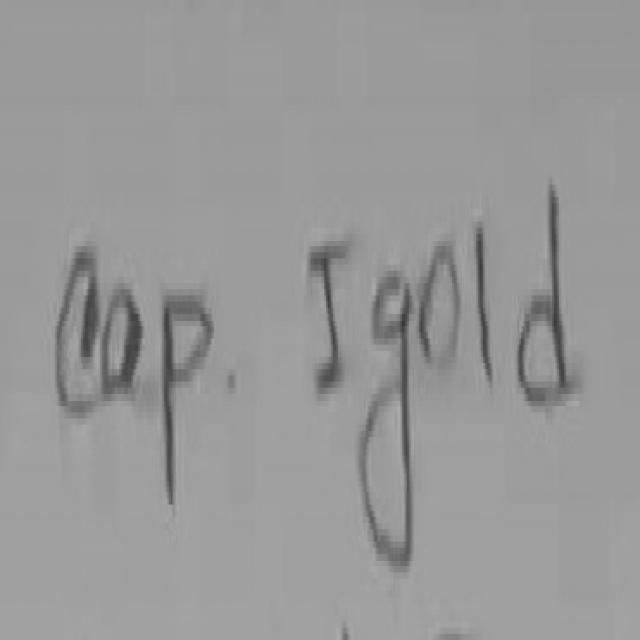 Cap. Igold